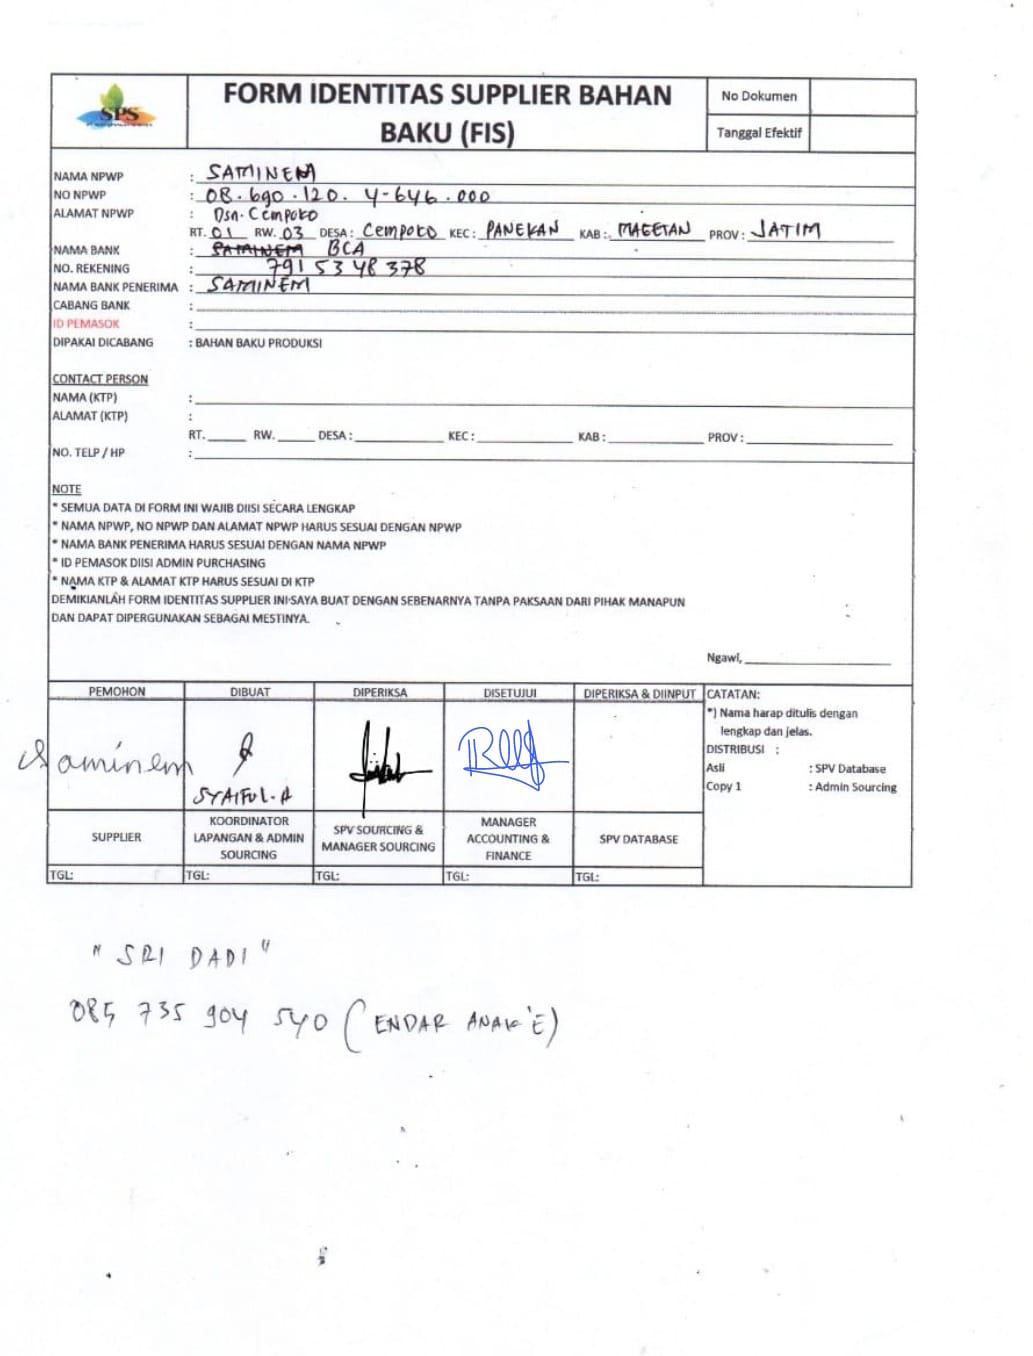 SPS
FORM IDENTITAS SUPPLIER BAHAN
BAKU (FIS)
No Dokumen
Tanggal Efektif
NAMA NPWP : SAMINEM
NO NPWP : 08.690.120.4-646.000
ALAMAT NPWP : Dsn. Cempoko
RT. 01 RW. 03 DESA: Cempoko KEC: PANEKAN KAB: MAGETAN PROV: JATIM
NAMA BANK : SAMINEM BCA
NO. REKENING : 791 5348 378
NAMA BANK PENERIMA : SAMINEM
CABANG BANK :
ID PEMASOK :
DIPAKAI DICABANG : BAHAN BAKU PRODUKSI
CONTACT PERSON
NAMA (KTP) :
ALAMAT (KTP) :
RT. RW. DESA: KEC: KAB: PROV:
NO. TELP / HP :
NOTE
* SEMUA DATA DI FORM INI WAJIB DIISI SECARA LENGKAP
* NAMA NPWP, NO NPWP DAN ALAMAT NPWP HARUS SESUAI DENGAN NPWP
* NAMA BANK PENERIMA HARUS SESUAI DENGAN NAMA NPWP
* ID PEMASOK DIISI ADMIN PURCHASING
* NAMA KTP & ALAMAT KTP HARUS SESUAI DI KTP
DEMIKIANLAH FORM IDENTITAS SUPPLIER INI SAYA BUAT DENGAN SEBENARNYA TANPA PAKSAAN DARI PIHAK MANAPUN
DAN DAPAT DIPERGUNAKAN SEBAGAI MESTINYA.
Ngawi,
PEMOHON DIBUAT DIPERIKSA DISETUJUI DIPERIKSA & DIINPUT
Saminem
SYAIFUL.A
SUPPLIER
KOORDINATOR
LAPANGAN & ADMIN
SOURCING
SPV SOURCING &
MANAGER SOURCING
MANAGER
ACCOUNTING &
FINANCE
SPV DATABASE
TGL: TGL: TGL: TGL: TGL:
CATATAN:
*) Nama harap ditulis dengan
lengkap dan jelas.
DISTRIBUSI :
Asli : SPV Database
Copy 1 : Admin Sourcing
"SRI DADI"
085 735 904 540 (ENDAR ANAK'E)